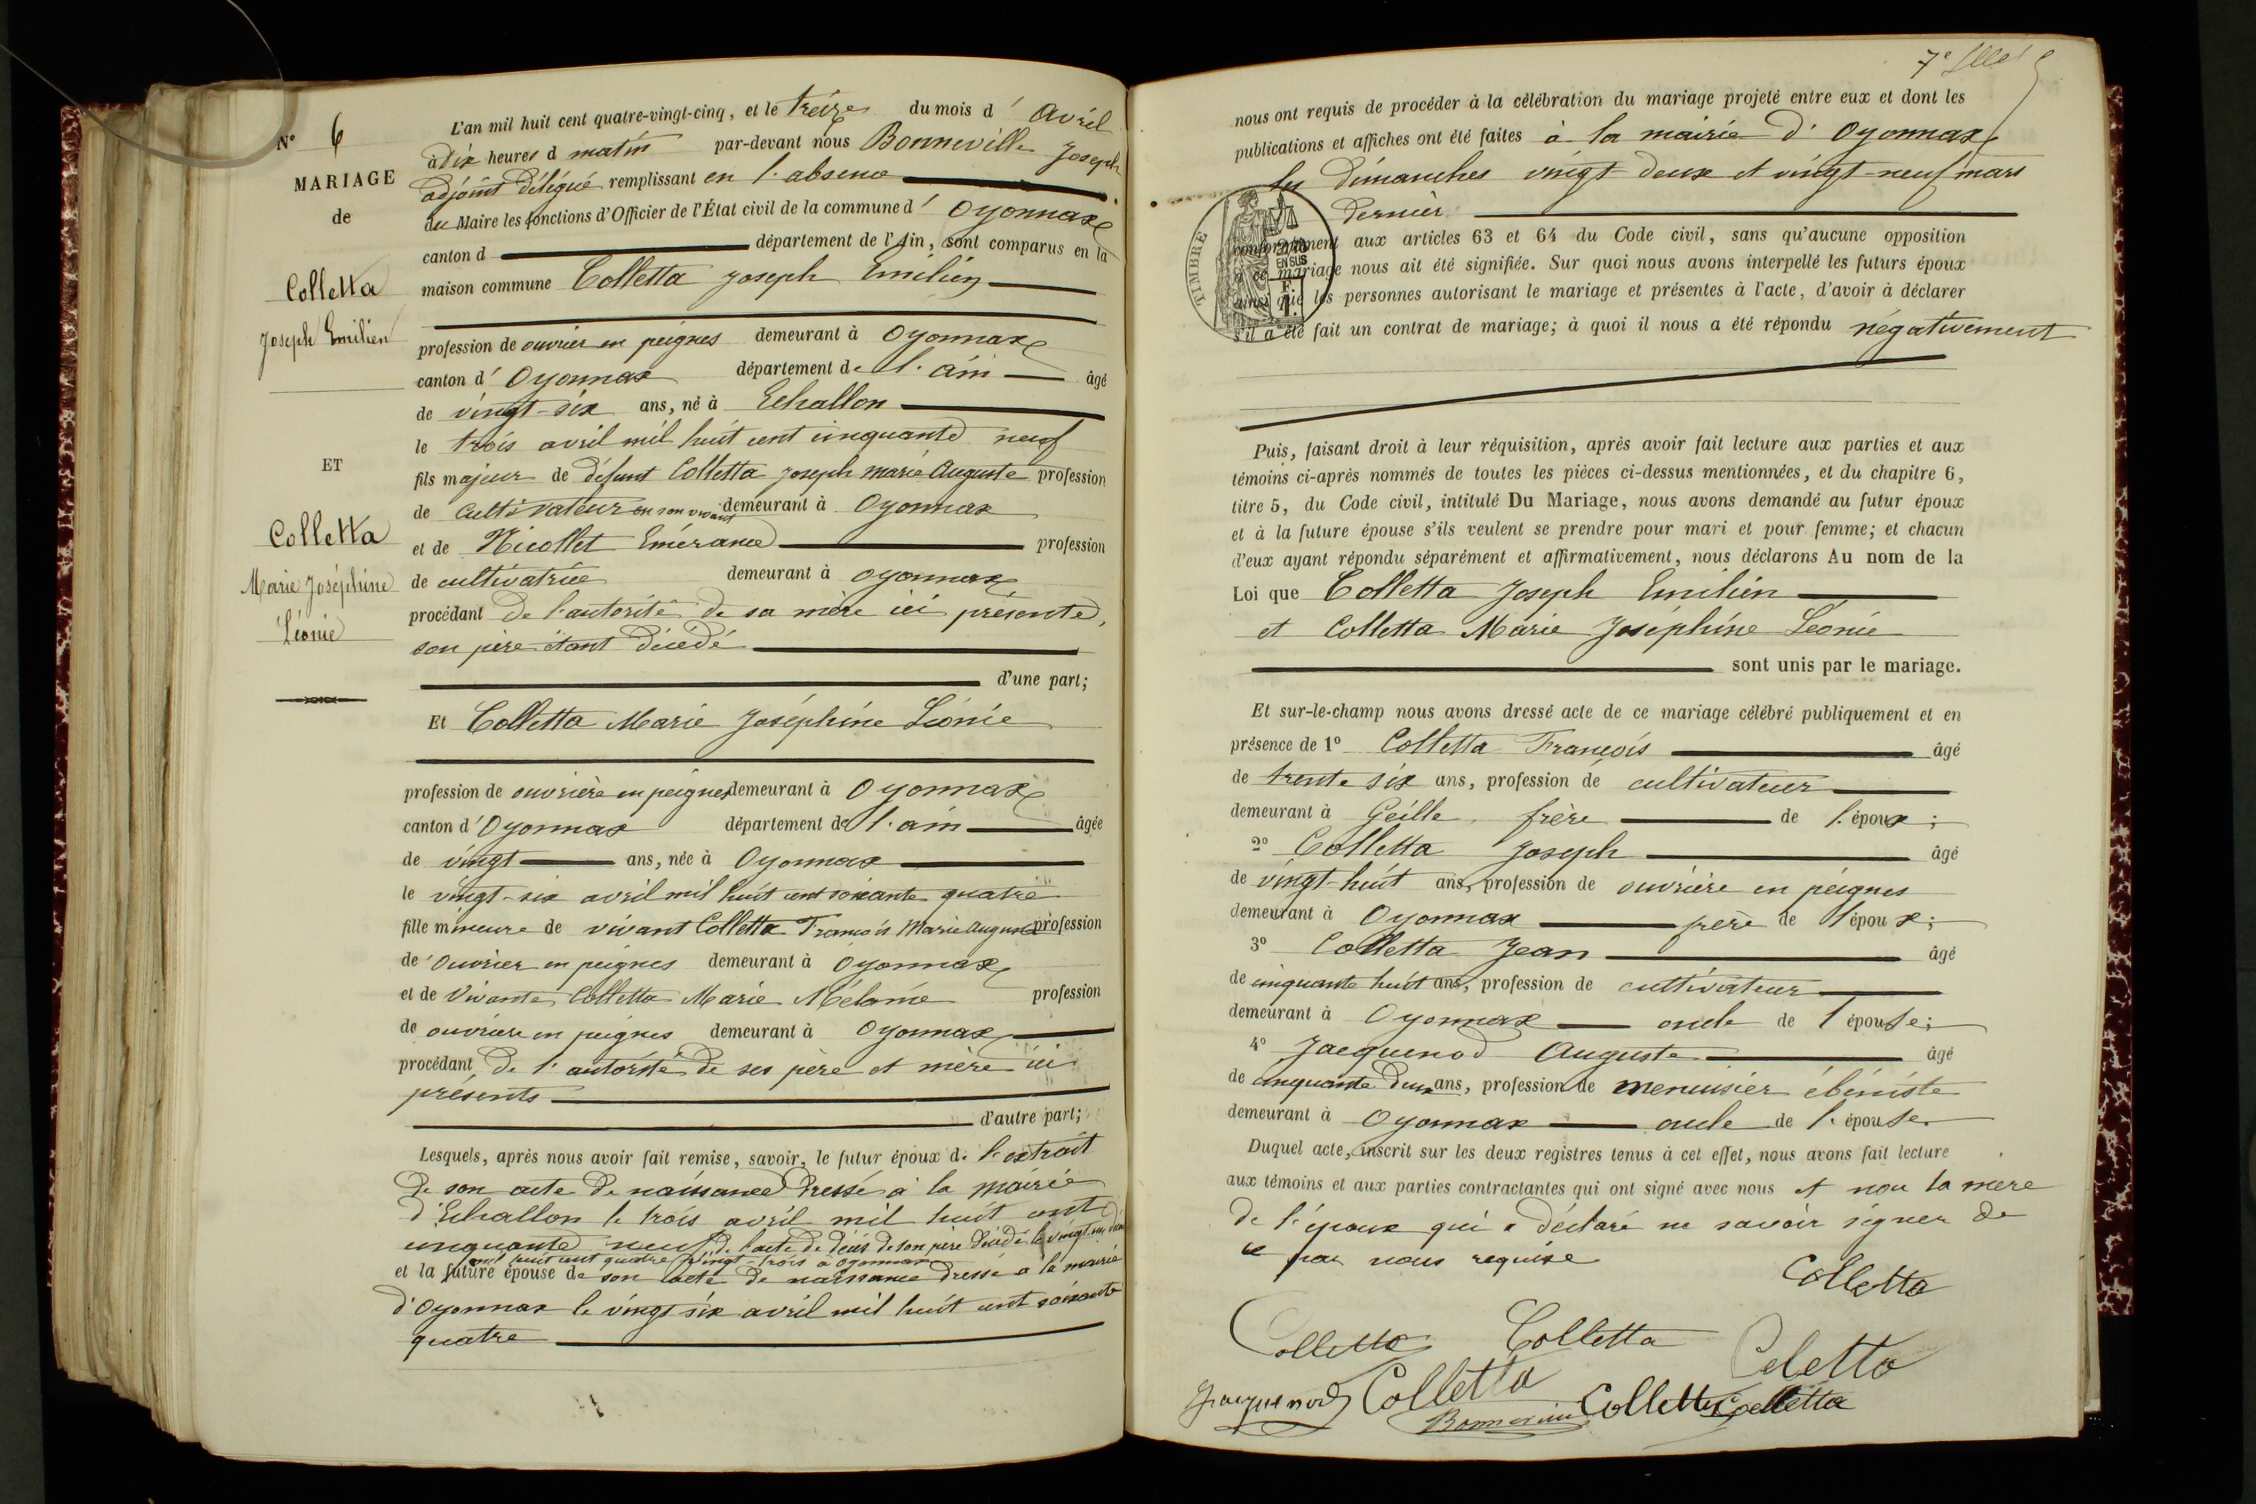 N° 6
MARIAGE
de
Colletta
Joseph Emilien
ET
Colletta
Marie Joséphine
Léonie
L'an mil huit cent quatre-vingt-cinq, et le treize du mois d' avril
à dix heures d matin par-devant nous Bonneville Joseph
adjoint délégué remplissant en l'absence
du Maire les fonctions d'Officier de l'État civil de la commune d' Oyonnax
canton d département de l'Ain, sont comparus en la
maison commune Colletta Joseph Emilien
profession de ouvrier en peignes demeurant à Oyonnax
canton d' Oyonnax département de l'ain âgé
de vingt-six ans, né à Echallon
le trois avril mil huit cent cinquante neuf
fils majeur de défunt Colletta Joseph Marie Auguste profession
de cultivateur en son vivant demeurant à Oyonnax
et de Nicollet Emérance profession
de cultivatrice demeurant à Oyonnax
procédant de l'autorité de sa mère ici présente,
son père étant décédé
d'une part;
Et Colletta Marie Joséphine Léonie
profession de ouvrière en peignes demeurant à Oyonnax
canton d' Oyonnax département de l'ain âgée
de vingt ans, née à Oyonnax
le vingt-six avril mil huit cent soixante quatre
fille mineure de vivant Colletta François Marie August profession
de ouvrier en peignes demeurant à Oyonnax
et de vivante Colletta Marie Mélanie profession
de ouvrière en peignes demeurant à Oyonnax
procédant de l'autorité de ses père et mère ici
présents
d'autre part;
Lesquels, après nous avoir fait remise, savoir, le futur époux de l'extrait
de son acte de naissance dressé à la mairie
d'Echallon le trois avril mil huit cent
cinquante neuf de l'acte de décès de son père décédé le vingt
mil huit cent quatre vingt-trois à Oyonnax
et la future épouse de son acte de naissance dressé a la mairie
d'Oyonnax le vingt six avril mil huit cent soixante
quatre
7e
nous ont requis de procéder à la célébration du mariage projeté entre eux et dont les
publications et affiches ont été faites à la mairie d'Oyonnax
les dimanches vingt deux et vingt-neuf mars
dernier
TIMBRE
EN SUS
conformément aux articles 63 et 64 du Code civil, sans qu'aucune opposition
à ce mariage nous ait été signifiée. Sur quoi nous avons interpellé les futurs époux
ainsi que les personnes autorisant le mariage et présentes à l'acte, d'avoir à déclarer
s'il a été fait un contrat de mariage; à quoi il nous a été répondu négativement
Puis, faisant droit à leur réquisition, après avoir fait lecture aux parties et aux
témoins ci-après nommés de toutes les pièces ci-dessus mentionnées, et du chapitre 6,
titre 5, du Code civil, intitulé Du Mariage, nous avons demandé au futur époux
et à la future épouse s'ils veulent se prendre pour mari et pour femme; et chacun
d'eux ayant répondu séparément et affirmativement, nous déclarons Au nom de la
Loi que Colletta Joseph Emilien
et Colletta Marie Joséphine Léonie
sont unis par le mariage.
Et sur-le-champ nous avons dressé acte de ce mariage célébré publiquement et en
présence de 1° Colletta François âgé
de trente six ans, profession de cultivateur
demeurant à Geille frère de l'époux;
2° Colletta Joseph âgé
de vingt-huit ans, profession de ouvrière en peignes
demeurant à Oyonnax frère de l'époux;
3° Colletta Jean âgé
de cinquante huit ans, profession de cultivateur
demeurant à Oyonnax oncle de l'épouse;
4° Jacquenod Auguste âgé
de cinquante deux ans, profession de menuisier ébéniste
demeurant à Oyonnax oncle de l'épouse.
Duquel acte, inscrit sur les deux registres tenus à cet effet, nous avons fait lecture
aux témoins et aux parties contractantes qui ont signé avec nous et non la mère
de l'époux qui a déclaré ne savoir signer de
ce par nous requise
Colletta
Colletta Colletta Coletta
Jacquenod Colletta Colletta Colletta